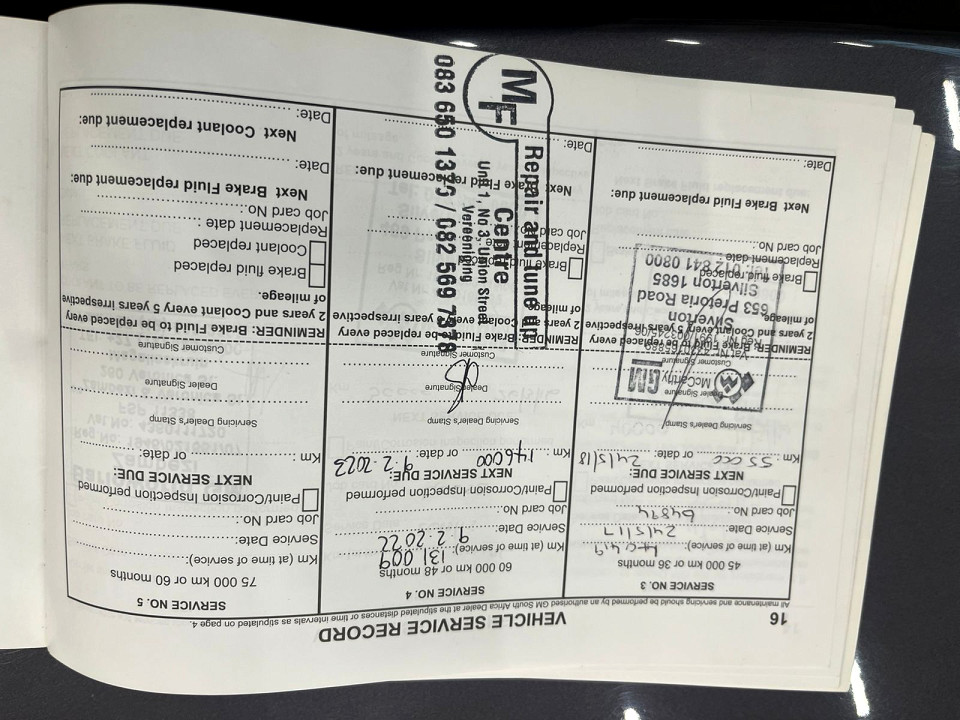 16
VEHICLE SERVICE RECORD
All maintenance and servicing should be performed by an authorised GM South Africa Dealer at the stipulated distances or time intervals as stipulated on page 4.
SERVICE NO. 3
45 000 km or 36 months
Km (at time of service):
Service Date: 24/5/17
Job card No.: 64894
Paint/Corrosion Inspection performed
NEXT SERVICE DUE:
Km: 55 000 or date: 24/5/18
Servicing Dealer's Stamp
Dealer Signature
Customer Signature
McCarthy
GM
Silverton
653 Pretoria Road
Silverton 1685
Tel: 012 841 0800
REMINDER: Brake Fluid to be replaced every
2 years and Coolant every 5 years irrespective
of mileage.
Brake fluid replaced
Replacement date
Job card No.:
Next Brake Fluid replacement due
Date:
SERVICE NO. 4
60 000 km or 48 months
Km (at time of service): 131 009
Service Date: 9.2.2022
Job card No.:
Paint/Corrosion Inspection performed
NEXT SERVICE DUE:
Km: 146000 or date: 9.2.2023
Servicing Dealer's Stamp
Dealer Signature
Customer Signature
REMINDER: Brake Fluid to be replaced every
2 years and Coolant every 5 years irrespective
of mileage.
Brake fluid replaced
Replacement date
Job card No.:
Next Brake Fluid replacement due:
Date:
MF
Repair and tune up
Centre
Unit 1, No 3, Union Street
Vereeniging
083 650 1390 / 082 569 7378
SERVICE NO. 5
75 000 km or 60 months
Km (at time of service):
Service Date:
Job card No.
Paint/Corrosion Inspection performed
NEXT SERVICE DUE:
Km: or date:
Servicing Dealer's Stamp
Dealer Signature
Customer Signature
REMINDER: Brake Fluid to be replaced every
2 years and Coolant every 5 years irrespective
of mileage.
Brake fluid replaced
Coolant replaced
Replacement date
Job card No.:
Next Brake Fluid replacement due:
Date:
Next Coolant replacement due:
Date: